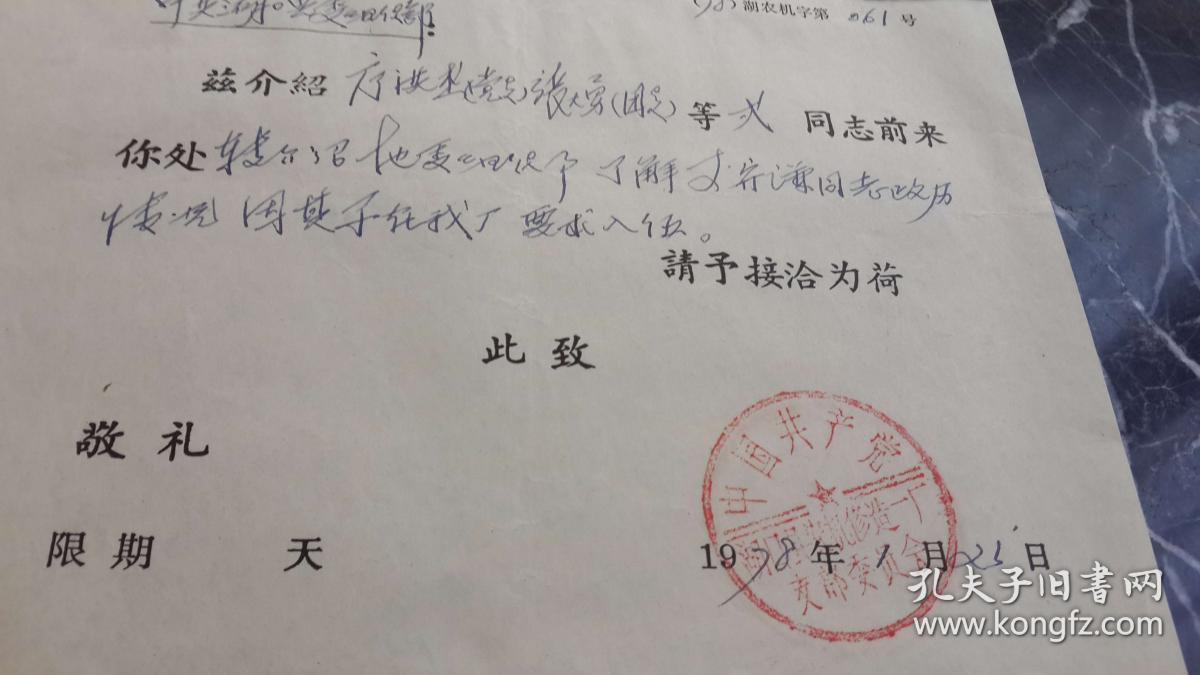 湖农机字第061号
兹介紹 張大勇(团员)等弍 同志前来
你处转介绍地委组织部了解 同志政历
情况 因其子在我厂要求入伍。
請予接洽为荷
此致
敬礼
中国共产党
农机修造一厂
支部委员会
限期 天 1978年1月25日
孔夫子旧书网
www.kongfz.com